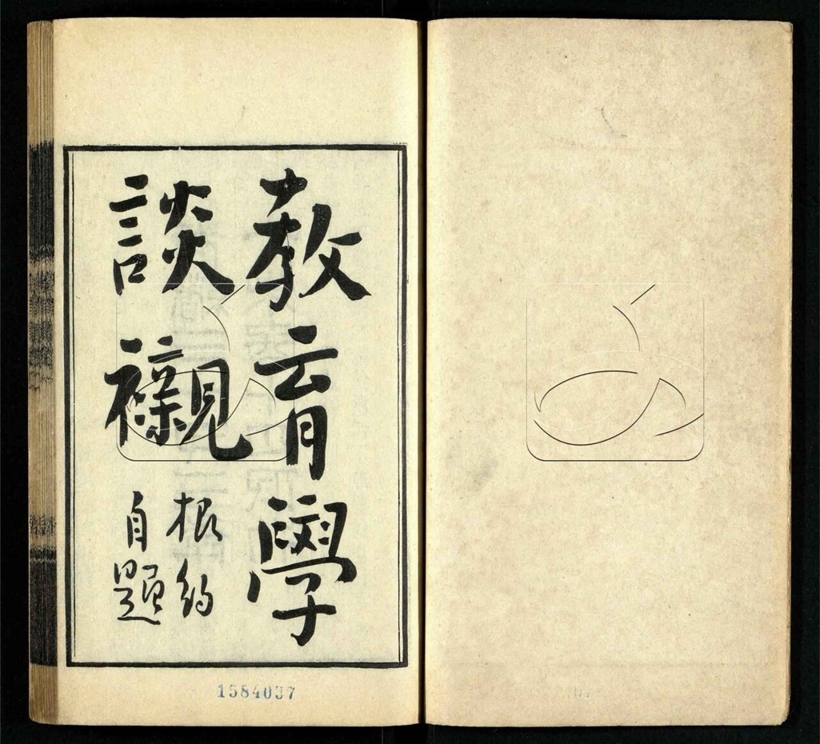 教育學
談襯
根約
自題
1584037